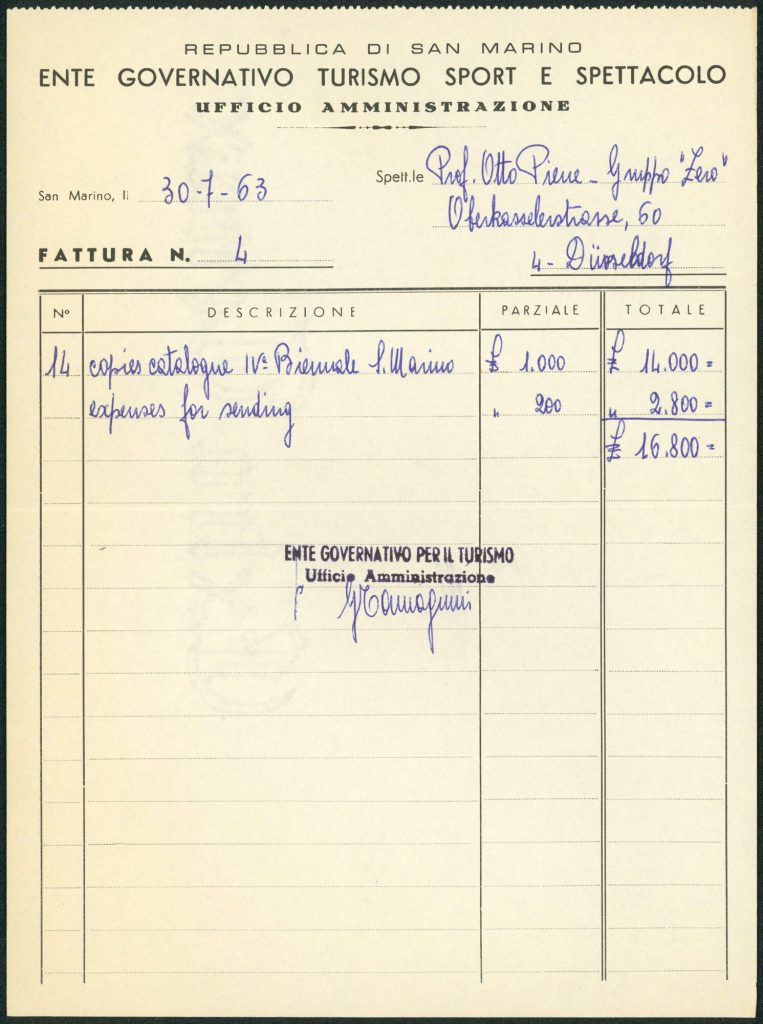 REPUBBLICA DI SAN MARINO
ENTE GOVERNATIVO TURISMO SPORT E SPETTACOLO
UFFICIO AMMINISTRAZIONE
San Marino, li 30-7-63
Spett.le Prof. Otto Piene - Gruppo "Zero"
Oberkasselerstrasse, 60
4 - Düsseldorf
FATTURA N. 4
Nº DESCRIZIONE PARZIALE TOTALE
14 copies catalogue IVª Biennale S. Marino £ 1.000 £ 14.000=
expenses for sending " 200 " 2.800=
£ 16.800=
ENTE GOVERNATIVO PER IL TURISMO
Ufficio Amministrazione